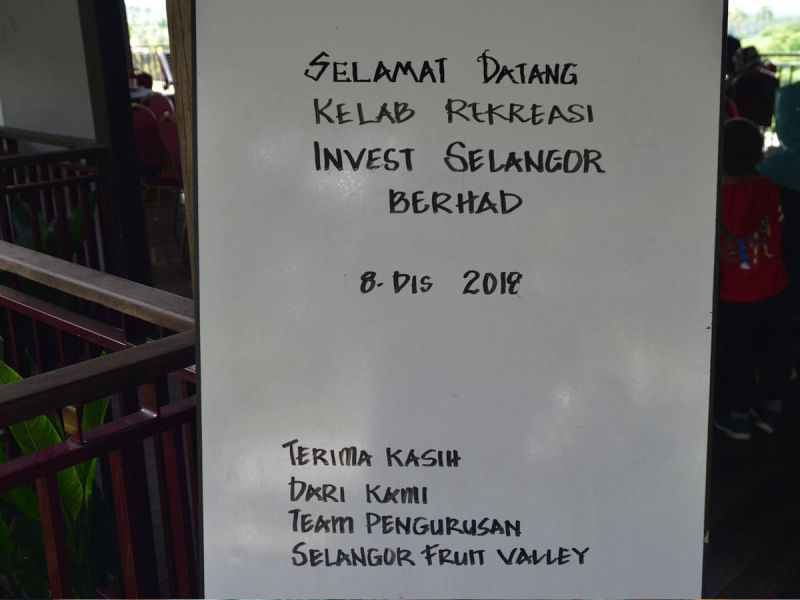 SELAMAT DATANG
KELAB REKREASI
INVEST SELANGOR
BERHAD
8-DIS 2018
TERIMA KASIH
DARI KAMI
TEAM PENGURUSAN
SELANGOR FRUIT VALLEY